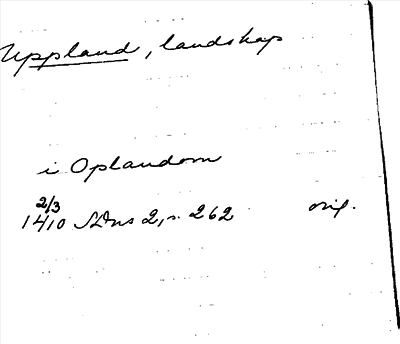 Uppland, landskap
i Oplandom
2/3
1410 SDns 2, s. 262 orig.